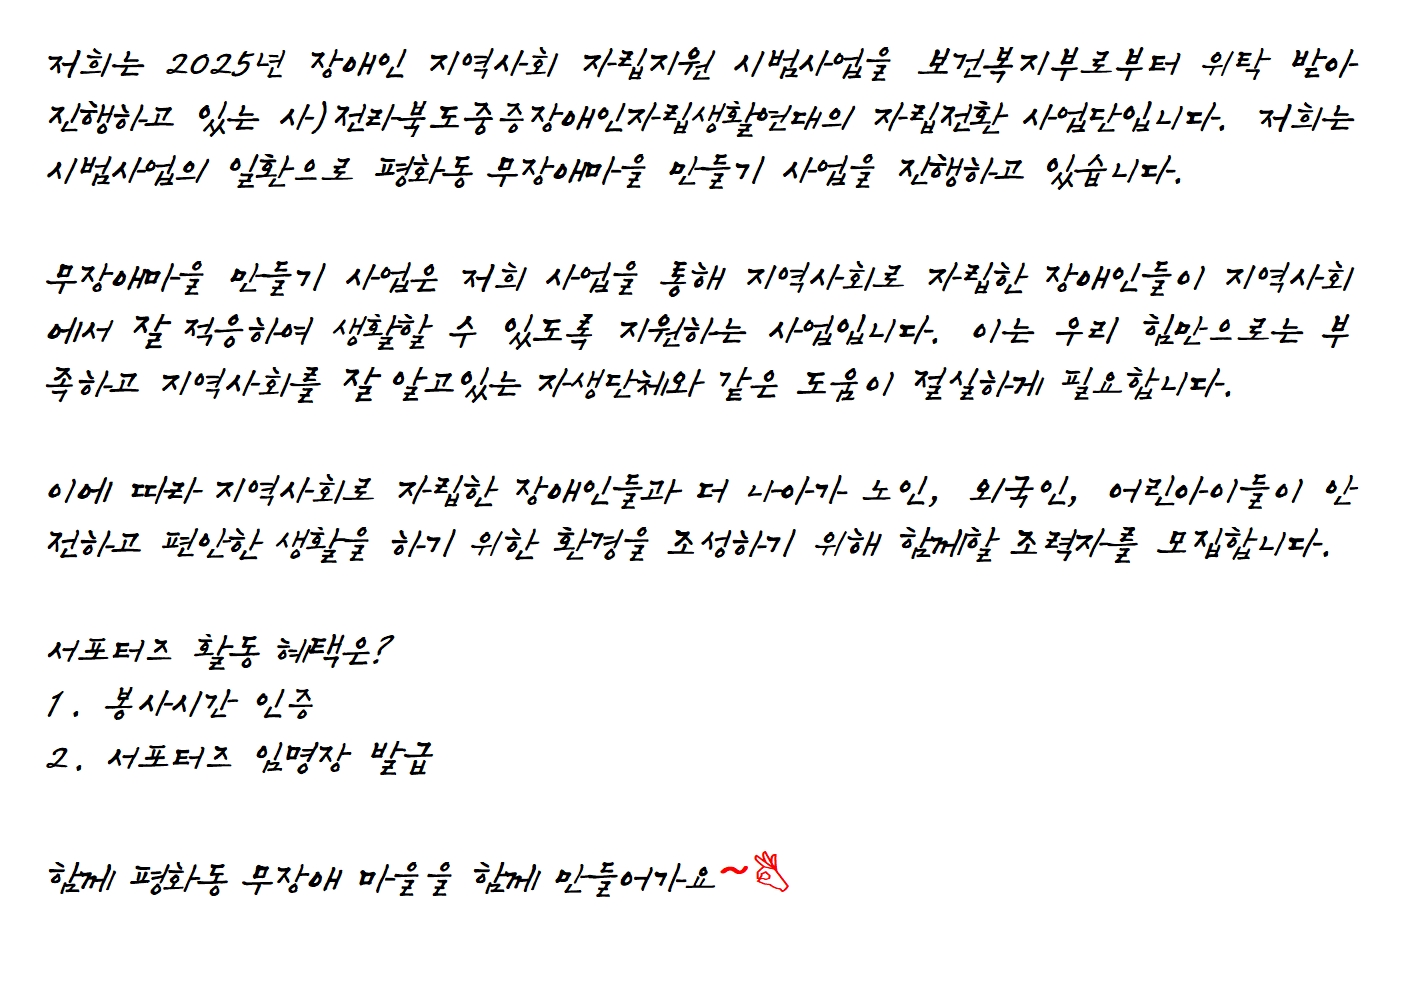 저희는 2025년 장애인 지역사회 자립지원 시범사업을 보건복지부로부터 위탁 받아
진행하고 있는 사)전라북도중증장애인자립생활연대의 자립전환 사업단입니다. 저희는
시범사업의 일환으로 평화동 무장애마을 만들기 사업을 진행하고 있습니다.
무장애마을 만들기 사업은 저희 사업을 통해 지역사회로 자립한 장애인들이 지역사회
에서 잘 적응하여 생활할 수 있도록 지원하는 사업입니다. 이는 우리 힘만으로는 부
족하고 지역사회를 잘 알고있는 자생단체와 같은 도움이 절실하게 필요합니다.
이에 따라 지역사회로 자립한 장애인들과 더 나아가 노인, 외국인, 어린아이들이 안
전하고 편안한 생활을 하기 위한 환경을 조성하기 위해 함께할 조력자를 모집합니다.
서포터즈 활동 혜택은?
1. 봉사시간 인증
2. 서포터즈 임명장 발급
함께 평화동 무장애 마을을 함께 만들어가요~👌